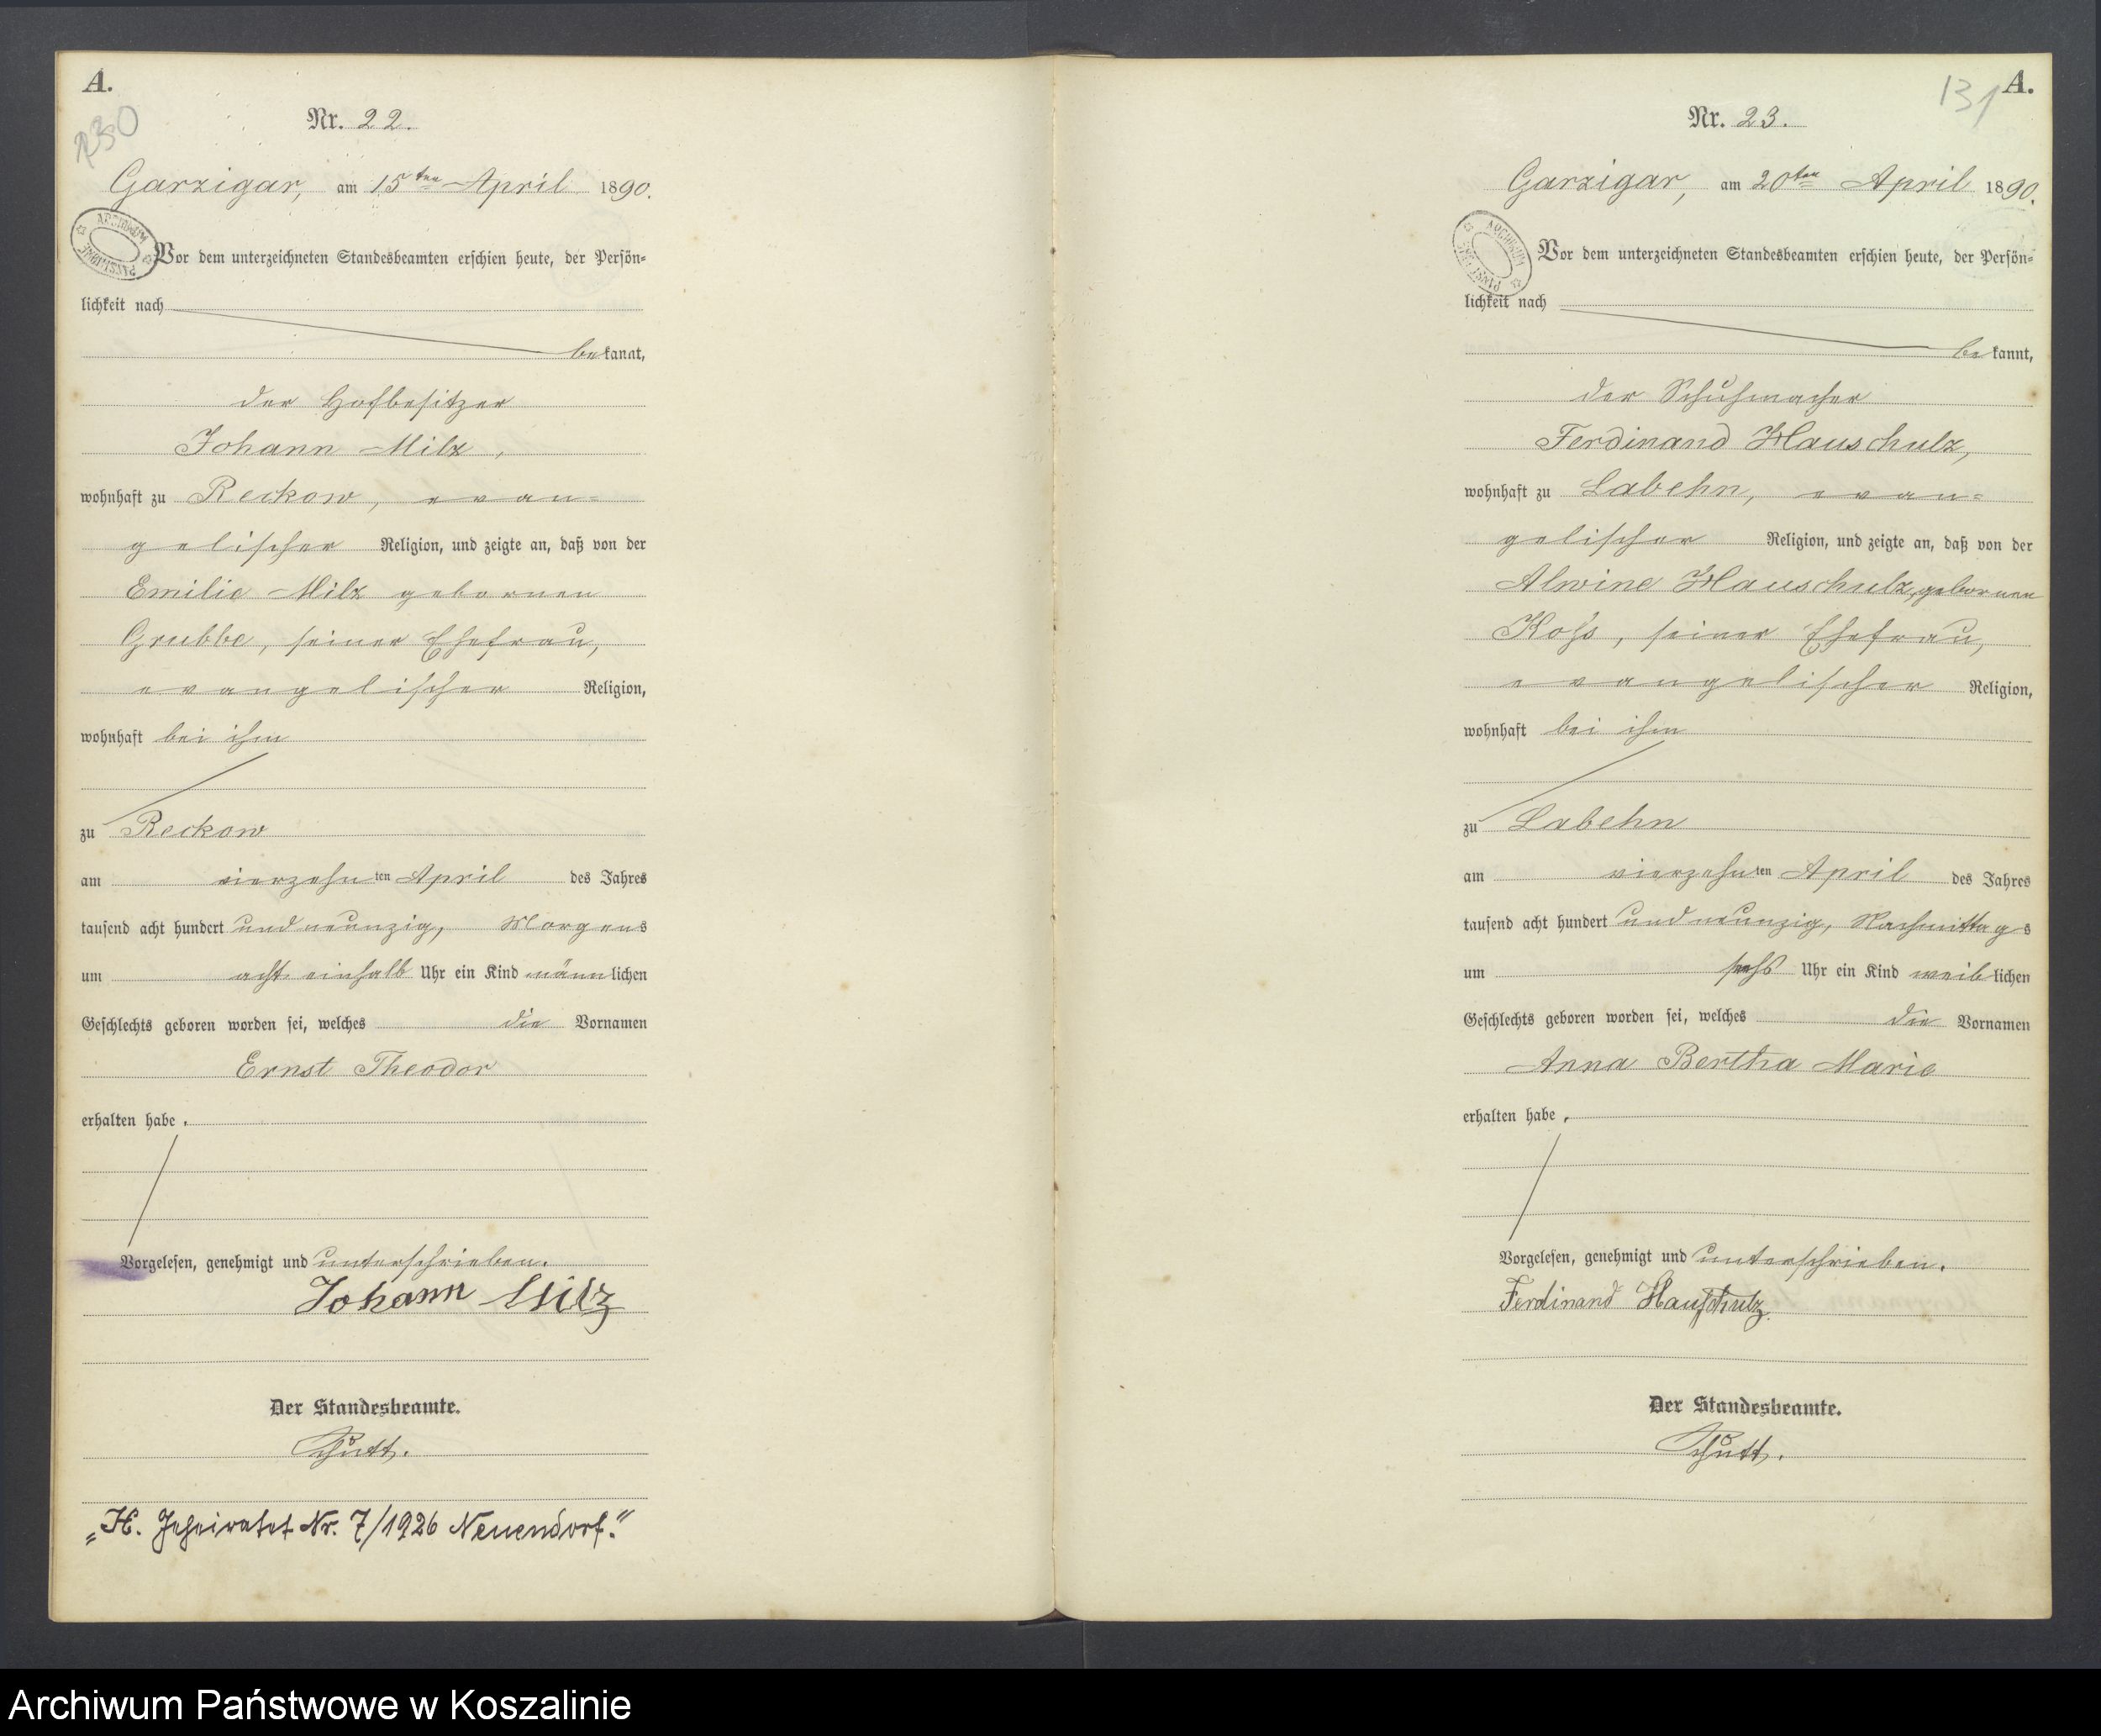 A.
Nr. 22.
Garzigar, am 15ten April 1890.
ARCHIWUM PAŃSTWOWE
Vor dem unterzeichneten Standesbeamten erschien heute, der Persön-
lichkeit nach
bekannt,
der Hofbesitzer
Johann Milz,
wohnhaft zu Reckow, evan-
gelischer Religion, und zeigte an, daß von der
Emilie Milz gebornen
Grubbe, seiner Ehefrau,
evangelischer Religion,
wohnhaft bei ihm
zu Reckow
am vierzehnten April des Jahres
tausend acht hundert und neunzig, Morgens
um acht einhalb Uhr ein Kind männlichen
Geschlechts geboren worden sei, welches die Vornamen
Ernst Theodor
erhalten habe.
Vorgelesen, genehmigt und unterschrieben.
Johann Milz
Der Standesbeamte.
Schütt.
„H. Geheiratet Nr. 7/1926 Neuendorf."
131
A.
Nr. 23.
Garzigar, am 20ten April 1890.
ARCHIWUM PAŃSTWOWE
Vor dem unterzeichneten Standesbeamten erschien heute, der Persön-
lichkeit nach
bekannt,
der Schuhmacher
Ferdinand Hauschulz,
wohnhaft zu Labehn, evan-
gelischer Religion, und zeigte an, daß von der
Alwine Hauschulz, gebornen
Koss, seiner Ehefrau,
evangelischer Religion,
wohnhaft bei ihm
zu Labehn
am vierzehnten April des Jahres
tausend acht hundert und neunzig, Nachmittags
um sechs Uhr ein Kind weiblichen
Geschlechts geboren worden sei, welches die Vornamen
Anna Bertha Marie
erhalten habe.
Vorgelesen, genehmigt und unterschrieben.
Ferdinand Hauschulz.
Der Standesbeamte.
Schütt.
Archiwum Państwowe w Koszalinie